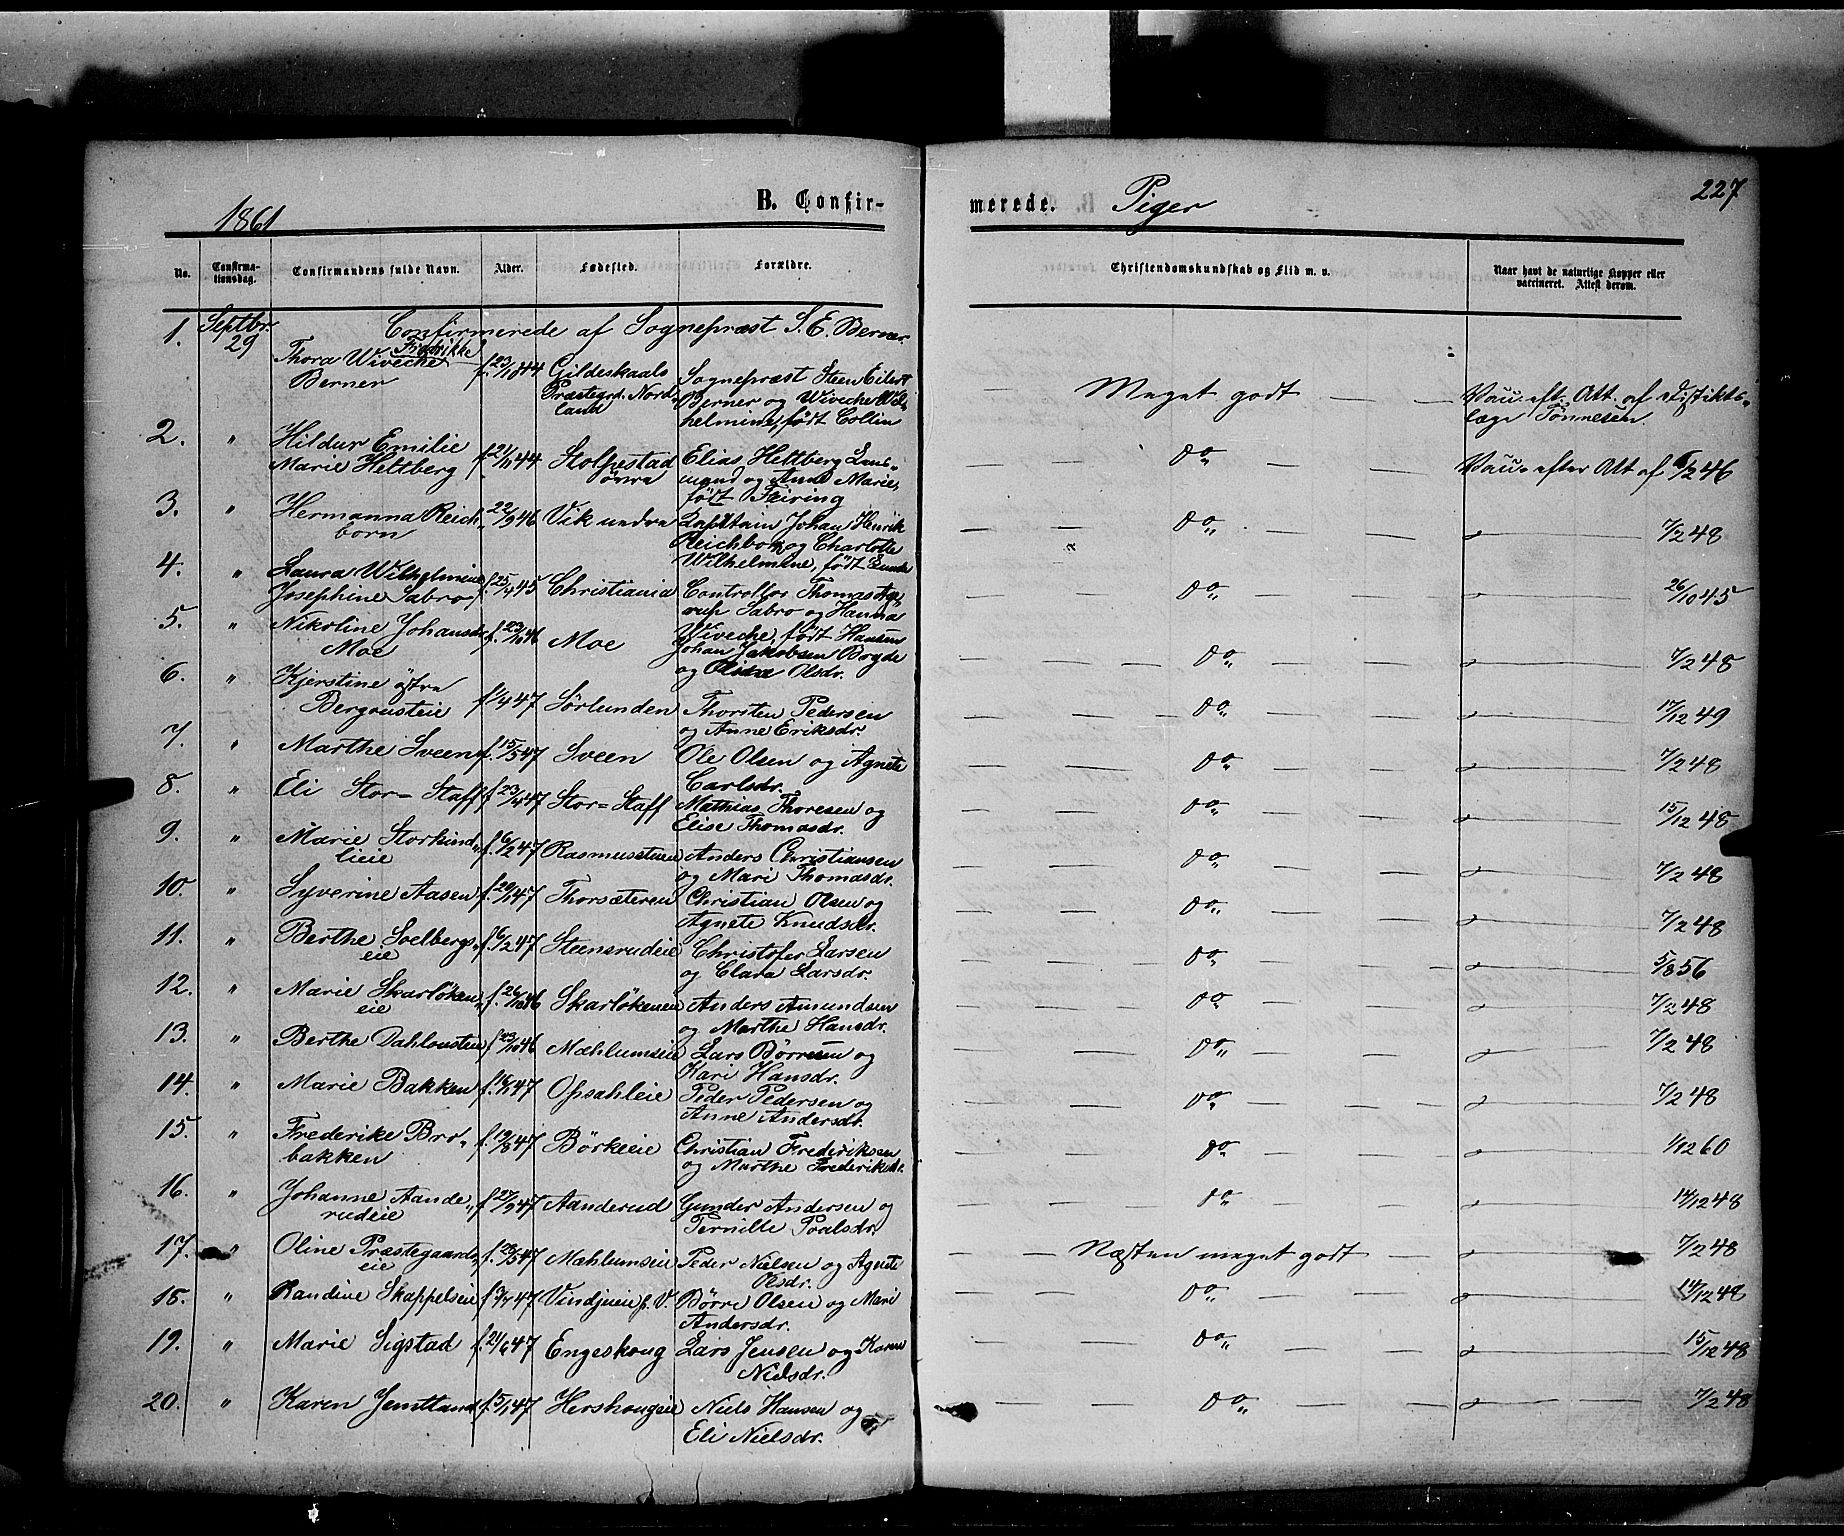 1861
B. Confirmerede. Piger
227
No. Confirmationsdag. Confirmandens fulde Navn. Alder. Fødested. Forældre. Christendomskundskab og Flid m. v. Naar havt de naturlige Kopper eller vaccineret. Attest derom.
Confirmerede af Sognepræst S. E. Berner
1. Septbr. 29 Thora Wiveche Fredrikke Berner f. 23/10 44 Gildeskaals Præstegrd. Nordland Sognepræst Steen Eilert Berner og Wiveche Wilhelmine, født Collin — Meget godt — — Vac. eft. Att. af Distiktslæge Tønnesen.
2. " Hildur Emilie Marie Hettberg f. 21/11 44 Stolpestad øvra Elias Hettberg Lensmand og Anne Marie, født Feiring do Vac. efter Att af /2 46
3. " Hermanna Reichborn 22/9 46 Vik nedra Captain Johan Henrik Reichborn og Charlotte Wilhelmine, født do 7/2 48
4. " Laura Wilhelmine Josephine Sabro f. 25/4 45 Christiania Controllor Thomas Sabro og Hanna Wiveche, født Hansen do 26/10 45
5. " Nikoline Johansdr. Moe f. 23/10 46 Moe Johan Jakobsen Bogde og Olsdr. do 7/2 48
6. " Kjerstine østre Bergousteie f. 1/4 47 Sørlunden Thorsten Pedersen og Anne Eriksdr. do 17/12 49
7. " Marthe Sveen f. 15/5 47 Sveen Ole Olsen og Agnete Carlsdr. do 7/2 48
8. " Eli Stor=Staff f. 23/4 47 Stor=Staff Mathias Thoresen og Elise Thomasdr. do 15/12 48
9. " Marie Storkindlieie f. 6/2 47 Rasmusstuen Anders Christiansen og Mari Thomasdr. do 7/2 48
10. " Syverine Aasen f. 20/1 47 Thorsæteren Christian Olsen og Agnete Knudsdr. do 7/2 48
11. " Berthe Soelbergseie f. 6/2 47 Steensrudeie Christofer Larsen og Clara Larsdr. do 5/8 56
12. " Marie Skarløkeneie f. 26/10 46 Skarløkenen Anders Amundsen og Marthe Hansdr. do 7/2 48
13. " Berthe Dahlousteie f. 23/10 46 Mæhlumseie Lars Børresen og Kari Hansdr. do 7/2 48
14. " Marie Bakken f. 18/1 47 Opsahleie Peder Pedersen og Anne Andersdr. do 7/2 48
15. " Frederike Brobakken f. 19/8 47 Børkeeie Christian Frederiksen og Marthe Frederiksdr. do 1/12 60
16. " Johanne Aanderudeie f. 27/9 47 Aanderud Gunder Andersen og Pernille Poalsdr. do 14/12 48
17. " Oline Præstegaardseie f. 28/5 47 Mæhlumseie Peder Nielsen og Agnete Olsdr. — — Næsten meget godt — 7/2 48
18. " Randine Skappelseie f. 3/7 47 Vindjueie p. V. Børre Olsen og Mari Andersdr. do 14/12 48
19. " Marie Sigstad f. 21/6 47 Engeskoug Lars Jensen og Karen Nielsdr. do 15/12 48
20. " Karen Jemtland f. 5/1 47 Hershougeie Niels Hansen og Eli Nielsdr. do 7/2 48